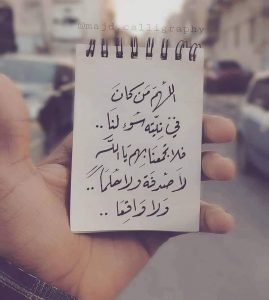 @majd_calligraphy
اللهم من كانَ
في نيّته سُوء لنا..
فلا تجمعنا بهم يا اللّٰه
لا صُدفَة ولا حُلماً..
ولا واقِعا..